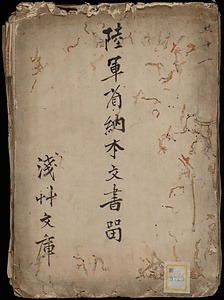 陸軍省納本文書留
淺艸文庫